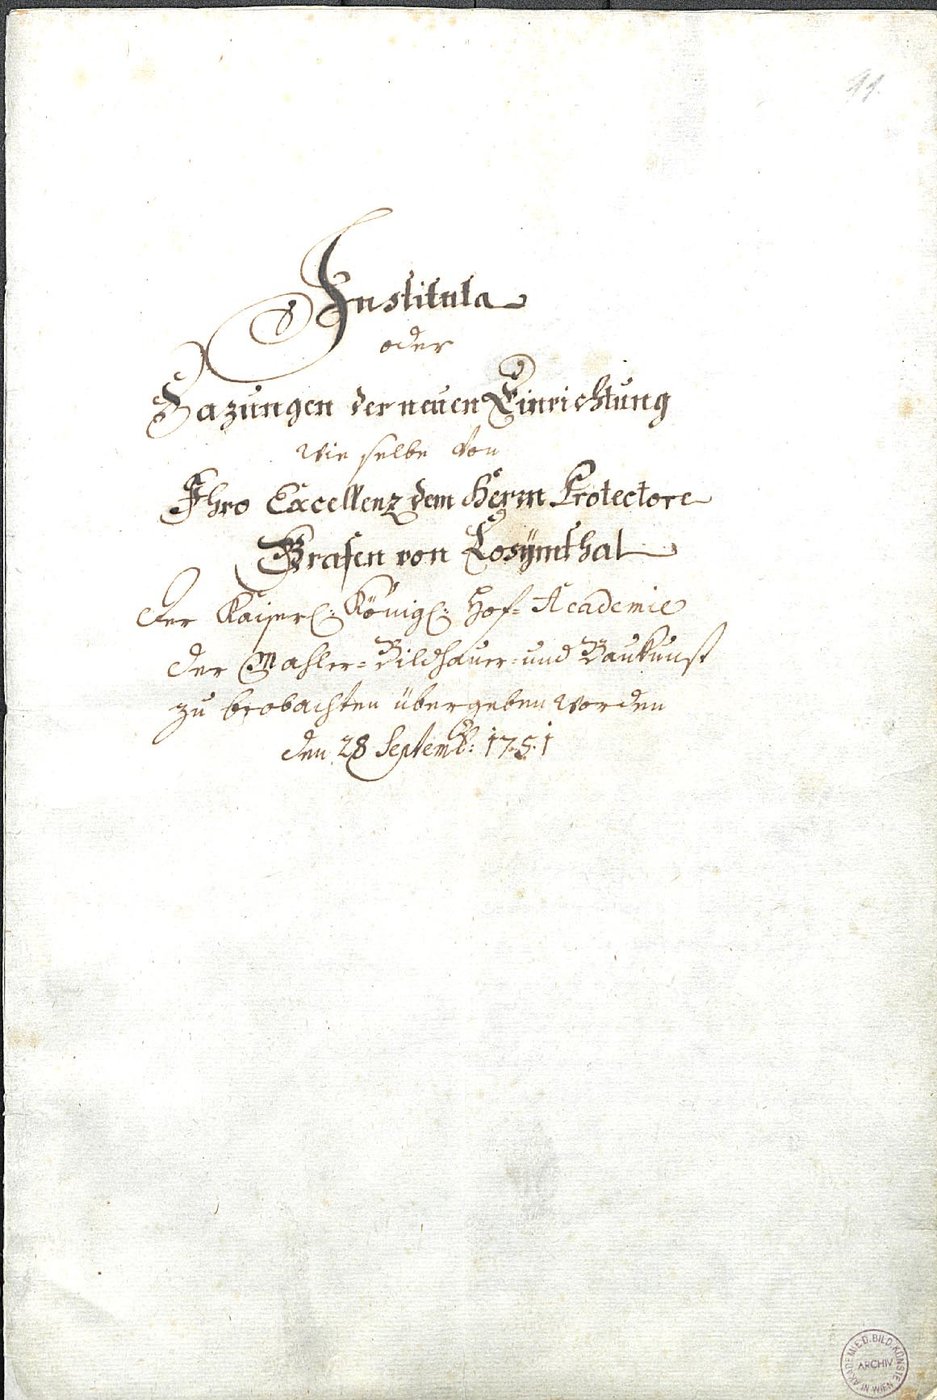 91.
Instituta
oder
Sazungen der neuen Einrichtung
wie selbe von
Ihro Excellenz dem Herrn Protectore
Grafen von Losÿmthal
der Kaiserl: Königl: Hof=Academie
der Mahler=Bildhauer=und Baukunst
zu beobachten übergeben worden
den 28 Septemb: 1751
AKADEMIE D. BILD. KÜNSTE
ARCHIV
IN WIEN